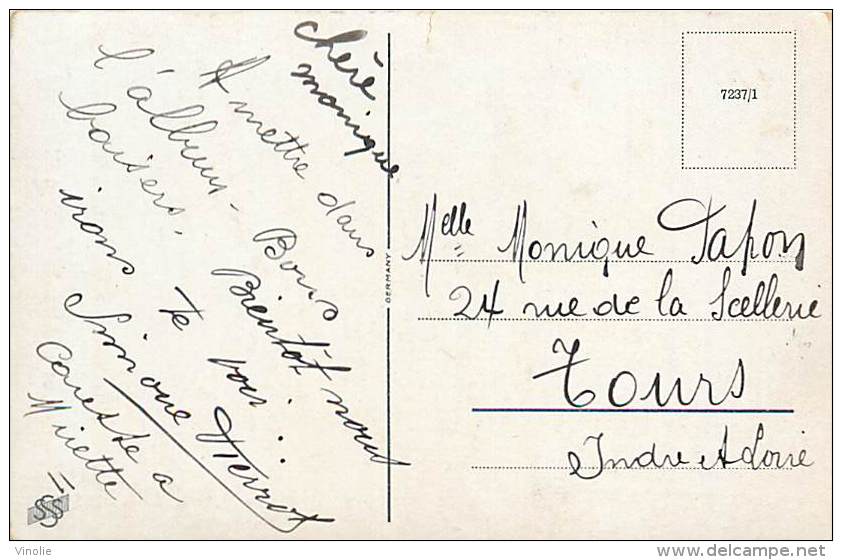 chère
monique
A mettre dans
l'album - Bons
baisers. Bientôt nous
irons te voir..
Simone Pierrot
Caresse a
Minette
GERMANY
7237/1
Melle Monique Papon
24 rue de la Scellerie
Tours
Indre et Loire
Vinolie
http://www.delcampe.net